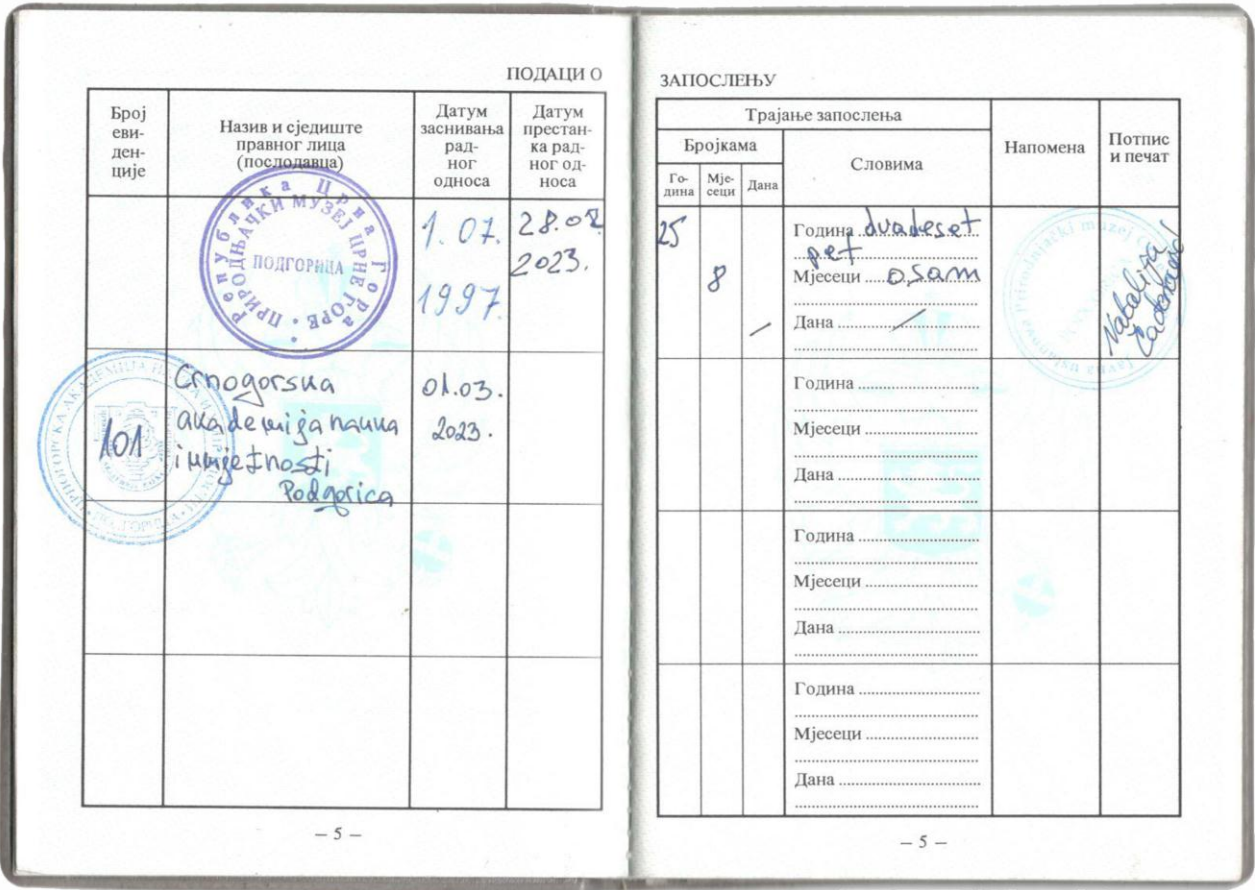 ПОДАЦИ О
Број
еви-
ден-
ције
Назив и сједиште
правног лица
(послодавца)
Датум
заснивања
рад-
ног
односа
Датум
престан-
ка рад-
ног од-
носа
Република Црна Гора
ПРИРОДЊАЧКИ МУЗЕЈ ЦРНЕ ГОРЕ
ПОДГОРИЦА
1. 07.
1997.
28.02
2023.
101
Crnogorska
akademija nauka
i umjetnosti
Podgorica
01.03.
2023.
– 5 –
ЗАПОСЛЕЊУ
Трајање запослења
Бројкама
Го-
дина
Мје-
сеци
Дана
Словима
Напомена
Потпис
и печат
25
8
/
Година dvadeset
pet
Мјесеци osam
Дана /
Natalija
Година
Мјесеци
Дана
Година
Мјесеци
Дана
Година
Мјесеци
Дана
– 5 –